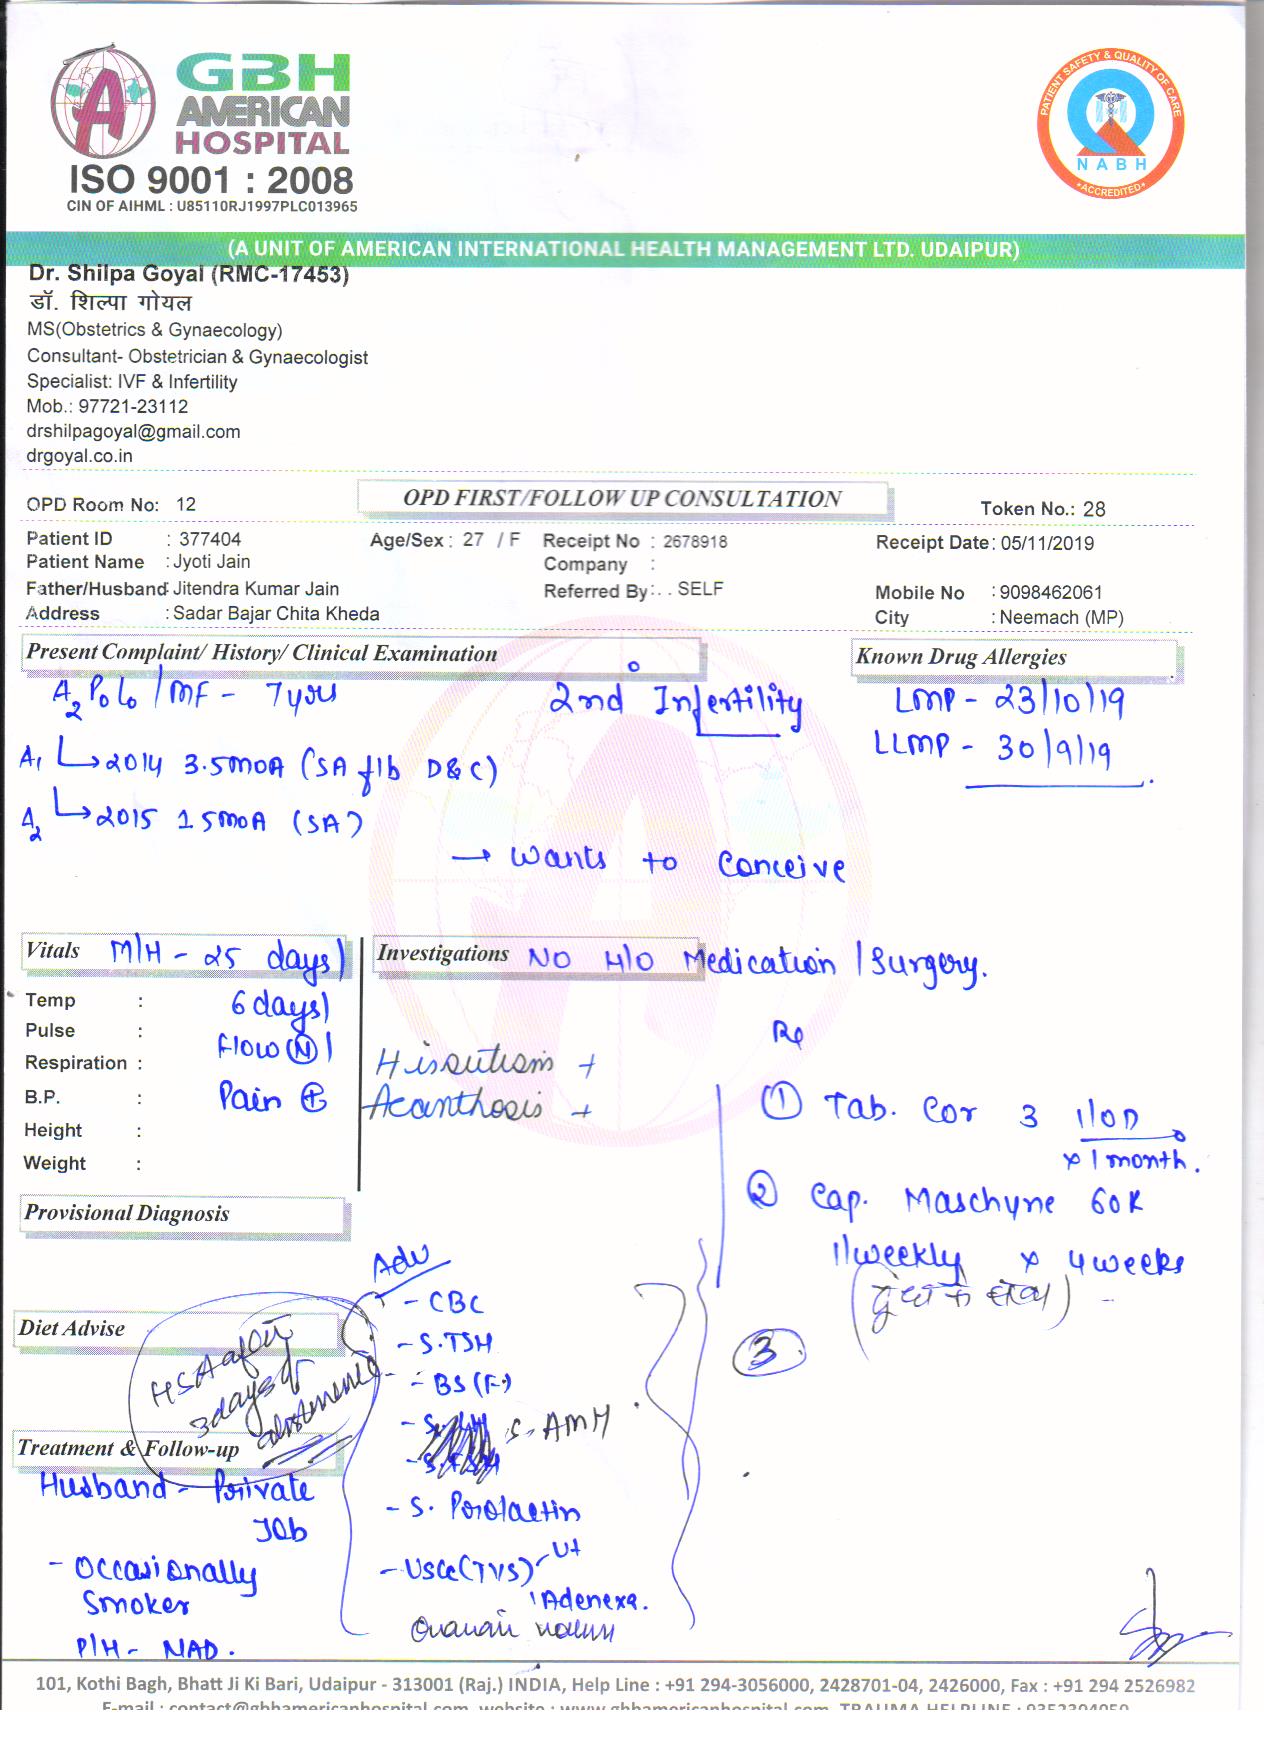 GBH
AMERICAN
HOSPITAL
ISO 9001 : 2008
CIN OF AIHML : U85110RJ1997PLC013965
PATIENT SAFETY & QUALITY OF CARE
NABH
ACCREDITED
(A UNIT OF AMERICAN INTERNATIONAL HEALTH MANAGEMENT LTD. UDAIPUR)
Dr. Shilpa Goyal (RMC-17453)
डॉ. शिल्पा गोयल
MS(Obstetrics & Gynaecology)
Consultant- Obstetrician & Gynaecologist
Specialist: IVF & Infertility
Mob.: 97721-23112
drshilpagoyal@gmail.com
drgoyal.co.in
OPD Room No: 12 OPD FIRST/FOLLOW UP CONSULTATION Token No.: 28
Patient ID : 377404 Age/Sex : 27 / F Receipt No : 2678918 Receipt Date: 05/11/2019
Patient Name : Jyoti Jain Company :
Father/Husband: Jitendra Kumar Jain Referred By:. . SELF Mobile No : 9098462061
Address : Sadar Bajar Chita Kheda City : Neemach (MP)
Present Complaint/ History/ Clinical Examination Known Drug Allergies
A2 P0L0 / MF - 7 years 2nd Infertility LMP - 23/10/19
A1 2014 3.5 MOA (SA f/b D&C) LLMP - 30/9/19
A2 2015 1.5 MOA (SA)
→ Wants to Conceive
Vitals M/H - 25 days/ Investigations No H/O Medication / Surgery.
Temp : 6 days/
Pulse : Flow (N) /
Respiration :
B.P. : Pain +
Height :
Weight :
Hirsutism +
Acanthosis +
Rp
1 Tab. Cor 3 1/OD
x 1 month.
2 Cap. Maschyne 60K
1/weekly x 4 weeks
3
Provisional Diagnosis
Adv
- CBC
- S.TSH
- BS (F)
S. AMH
- S. Prolactin
- USG (TVS) Ut
Adenexa.
Ovarian volum
Diet Advise
HSA after
3 days of
abstinence
Treatment & Follow-up
Husband - Private
Job
- Occasionally
Smoker
P/H - NAD.
101, Kothi Bagh, Bhatt Ji Ki Bari, Udaipur - 313001 (Raj.) INDIA, Help Line : +91 294-3056000, 2428701-04, 2426000, Fax : +91 294 2526982
E-mail : contact@gbhamericanhospital.com, website : www.gbhamericanhospital.com, TRAUMA HELPLINE : 9352304050